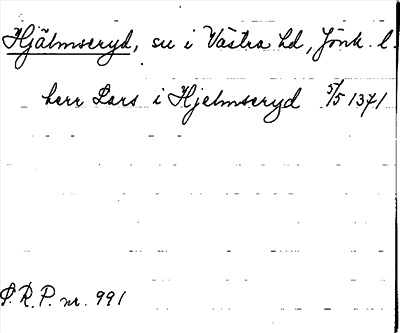 Hjälmseryd, sn i Västra hd, Jönk. l.
herr Lars i Hjelmseryd 5/5 1371
S.R.P. nr. 991